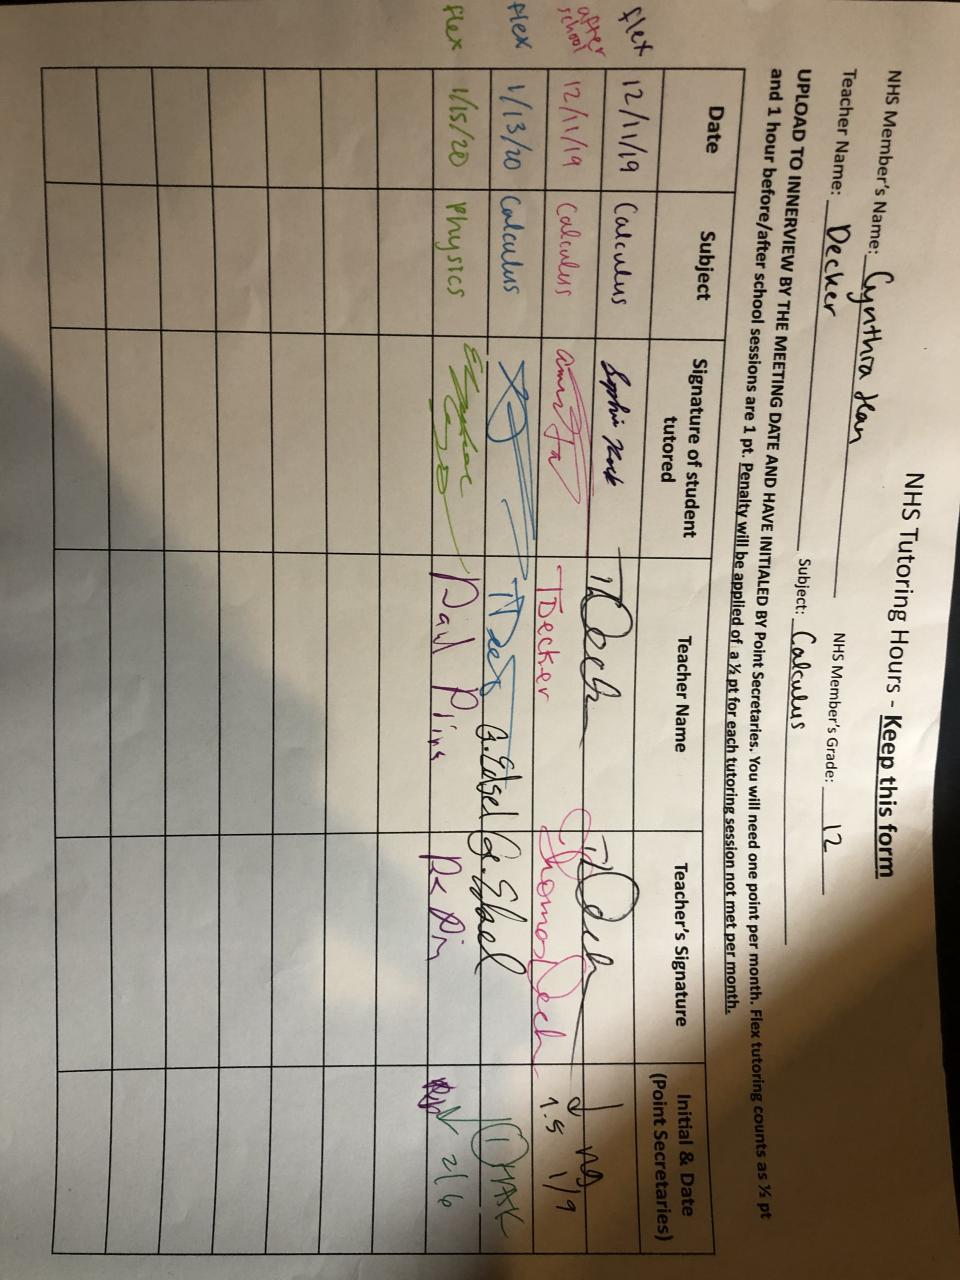 NHS Tutoring Hours - Keep this form
NHS Member's Name: Cynthia
NHS Member's Grade: 12
Teacher Name: Decker
Subject: Calculus
UPLOAD TO INNERVIEW BY THE MEETING DATE AND HAVE INITIALED BY Point Secretaries. You will need one point per month. Flex tutoring counts as ½ pt
and 1 hour before/after school sessions are 1 pt. Penalty will be applied of a ½ pt for each tutoring session not met per month.
Date Subject Signature of student tutored Teacher Name Teacher's Signature Initial & Date (Point Secretaries)
flex 12/11/19 Calculus
after school 12/11/19 calculus TDecker 1.5 1/9
flex 1/13/20 Calculus
flex 1/15/20 Physics 2/6